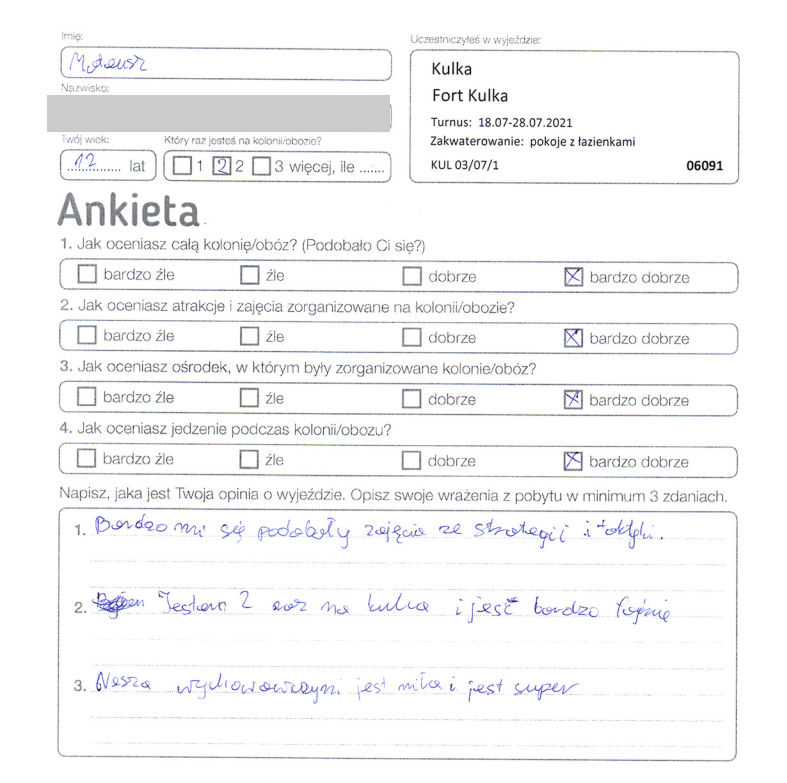 Imię:
Mateusz
Uczestniczyłeś w wyjeździe:
Kulka
Fort Kulka
Turnus: 18.07-28.07.2021
Zakwaterowanie: pokoje z łazienkami
KUL 03/07/1 06091
Nazwisko:
Twój wiek:
12 lat
Który raz jesteś na kolonii/obozie?
1 2 2 3 więcej, ile .......
Ankieta
1. Jak oceniasz całą kolonię/obóz? (Podobało Ci się?)
bardzo źle źle dobrze bardzo dobrze
2. Jak oceniasz atrakcje i zajęcia zorganizowane na kolonii/obozie?
bardzo źle źle dobrze bardzo dobrze
3. Jak oceniasz ośrodek, w którym były zorganizowane kolonie/obóz?
bardzo źle źle dobrze bardzo dobrze
4. Jak oceniasz jedzenie podczas kolonii/obozu?
bardzo źle źle dobrze bardzo dobrze
Napisz, jaka jest Twoja opinia o wyjeździe. Opisz swoje wrażenia z pobytu w minimum 3 zdaniach.
1. Bardzo mi się podobały zajęcia ze strategii i taktyki.
2. Jestem 2 raz na kulce i jest bardzo fajnie
3. Nasza wychowawczyni jest miła i jest super